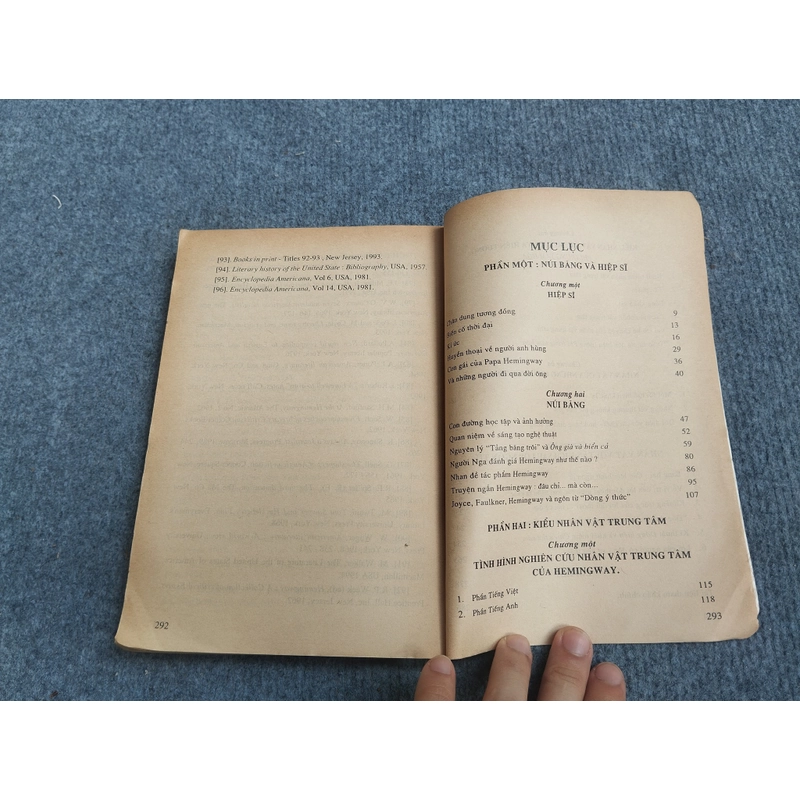 [93]. Books in print - Titles 92-93 , New Jersey, 1993.
[94]. Literary history of the United State : Bibliography, USA, 1957
[95]. Encyclopedia Americana, Vol 6, USA, 1981.
[96]. Encyclopedia Americana, Vol 14, USA, 1981.
292
MỤC LỤC
PHẦN MỘT : NÚI BĂNG VÀ HIỆP SĨ
Chương một
HIỆP SĨ
dung tương đồng 9
cố thời đại 13
ức 16
thoại về người anh hùng 29
gái của Papa Hemingway 36
Và những người đi qua đời ông 40
Chương hai
NÚI BĂNG
Con đường học tập và ảnh hưởng 47
Quan niệm về sáng tạo nghệ thuật 52
Nguyên lý "Tảng băng trôi" và Ông già và biển cả 59
Người Nga đánh giá Hemingway như thế nào ? 80
Nhan đề tác phẩm Hemingway 86
Truyện ngắn Hemingway : đâu chỉ... mà còn... 95
Joyce, Faulkner, Hemingway và ngôn từ "Dòng ý thức" 107
PHẦN HAI : KIỂU NHÂN VẬT TRUNG TÂM
Chương một
TÌNH HÌNH NGHIÊN CỨU NHÂN VẬT TRUNG TÂM
CỦA HEMINGWAY.
1. Phần Tiếng Việt 115
2. Phần Tiếng Anh 118
293